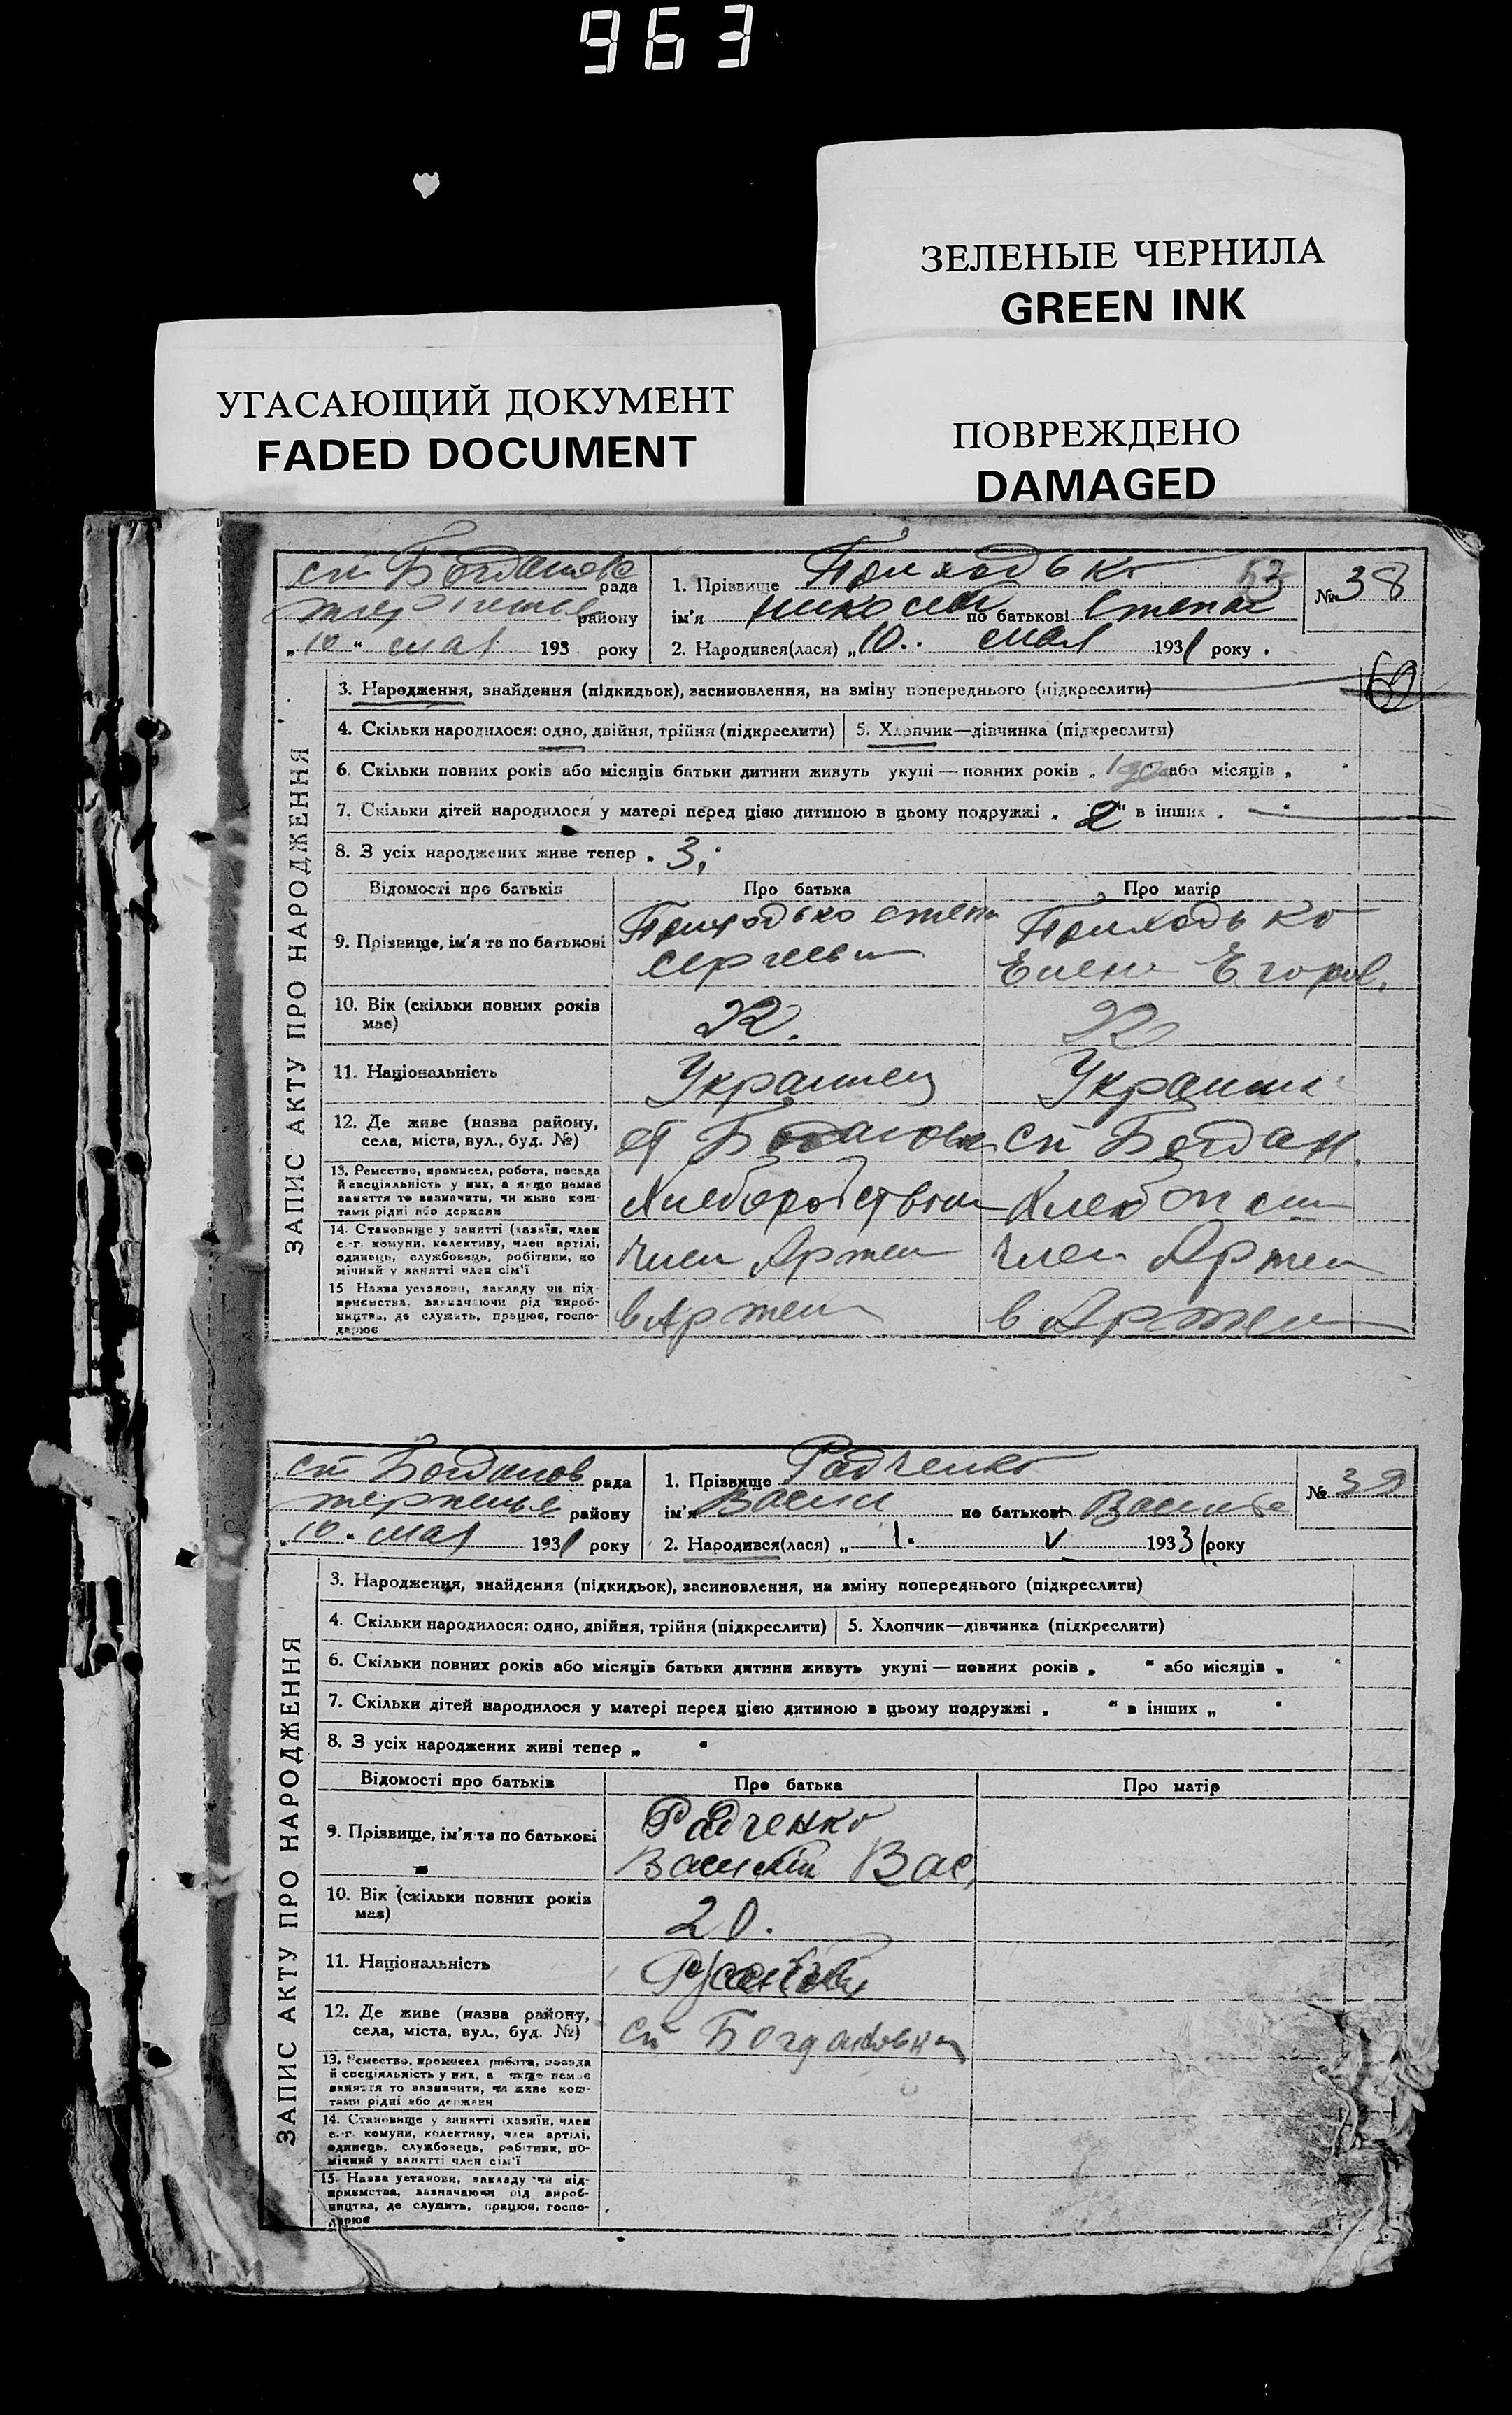 963
ЗЕЛЕНЫЕ ЧЕРНИЛА
GREEN INK
УГАСАЮЩИЙ ДОКУМЕНТ
FADED DOCUMENT
ПОВРЕЖДЕНО
DAMAGED
ЗАПИС АКТУ ПРО НАРОДЖЕННЯ
рада
району
„10“ мая 193 року
1. Прізвище Приходько 53
ім'я по батькові Степан
2. Народився(лася) „10.. мая 1931 року.
№ 38
3. Народження, знайдення (підкидьок), засиновлення, на зміну попереднього (підкреслити)
4. Скільки народилося: одно, двійня, трійня (підкреслити) 5. Хлопчик—дівчинка (підкреслити)
6. Скільки повних років або місяців батьки дитини живуть укупі — повних років „ або місяців „ “
7. Скільки дітей народилося у матері перед цією дитиною в цьому подружжі „ 2 “ в інших „ —
8. З усіх народжених живе тепер „ 3,
Відомості про батьків Про батька Про матір
9. Прізвище, ім'я та по батькові
Приходько степан
Приходько
Елена Егоров.
10. Вік (скільки повних років має) 22. 22
11. Національність Украинец
12. Де живе (назва району, села, міста, вул., буд. №) ст Богдан.
13. Ремество, промисел, робота, посада
й спеціяльність у них, а якщо немає
заняття то зазначити, чи живе кош-
тами рідні або держави
14. Становище у занятті (хазяїн, член
с.-г. комуни, колективу, член артілі,
одинець, службовець, робітник, по
мічний у занятті член сім'ї
член Артел член Артел
15 Назва установи, закладу чи під-
приємства, зазначаючи рід вироб-
ництва, де служить, працює, госпо-
дарює
в Артел в Артел
ЗАПИС АКТУ ПРО НАРОДЖЕННЯ
ст Богданов рада
району
„10. мая 1931 року
1. Прізвище Радченко
ім'я Васил по батькові
2. Народився(лася) „ 1. V 1933 1 року
№ 39
3. Народження, знайдення (підкидьок), засиновлення, на зміну попереднього (підкреслити)
4. Скільки народилося: одно, двійня, трійня (підкреслити) 5. Хлопчик—дівчинка (підкреслити)
6. Скільки повних років або місяців батьки дитини живуть укупі — повних років „ “ або місяців „ “
7. Скільки дітей народилося у матері перед цією дитиною в цьому подружжі „ “ в інших „ “
8. З усіх народжених живі тепер „ “
Відомості про батьків Про батька Про матір
9. Прізвище, ім'я та по батькові
Радченко
Василий Вас,
10. Вік (скільки повних років має) 20.
11. Національність
12. Де живе (назва району, села, міста, вул., буд. №) ст Богдановка
13. Ремество, промисел робота, посада
й спеціяльність у них, а якщо немає
заняття то зазначити, чи живе кош-
тами рідні або держави
14. Становище у занятті (хазяїн, член
с.-г. комуни, колективу, член артілі,
одинець, службовець, робітник, по-
мічний у занятті член сім'ї
15. Назва установи, закладу чи під-
приємства, зазначаючи рід вироб-
ництва, де служить, працює, госпо-
дарює